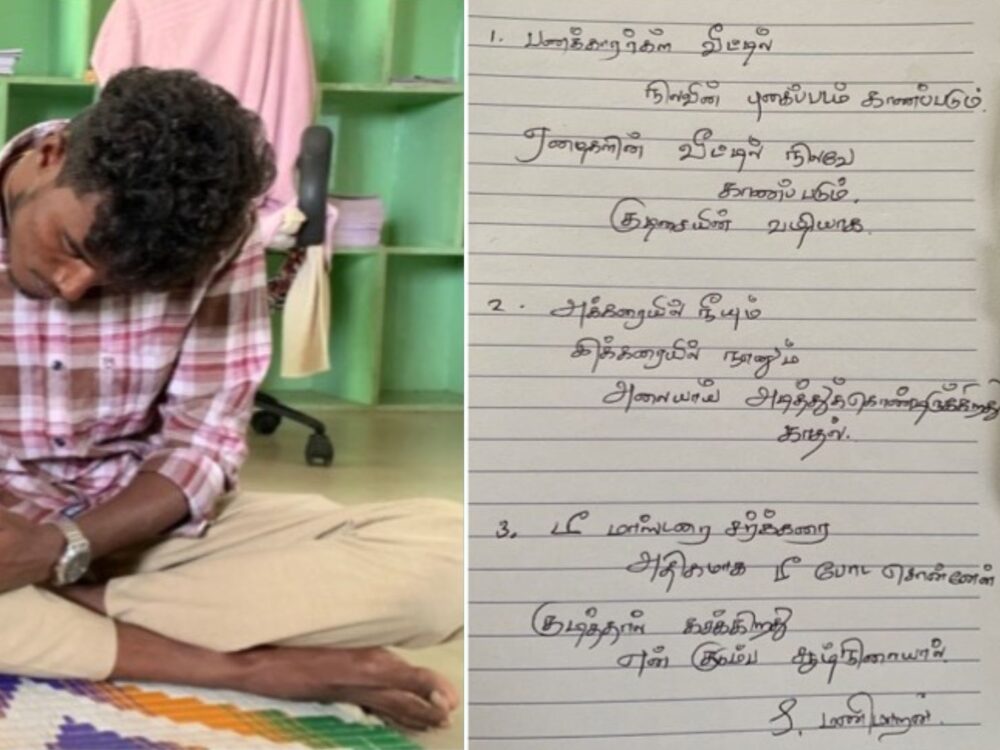 1. பணக்காரர்கள் வீட்டில்
நிலவின் புகைப்படம் காணப்படும்.
ஏழைகளின் வீட்டில் நிலவே
காணப்படும்.
குடிசையின் வழியாக.
2. அக்கரையில் நீயும்
இக்கரையில் நானும்
அலையாய் அடித்துக்கொண்டிருக்கிறது
காதல்.
3. டீ மாஸ்டரை சர்க்கரை
அதிகமாக டீ போட சொன்னேன்
குடித்தால் கசக்கிறது
என் குடும்ப சூழ்நிலையால்.
S. மணிமாறன்.